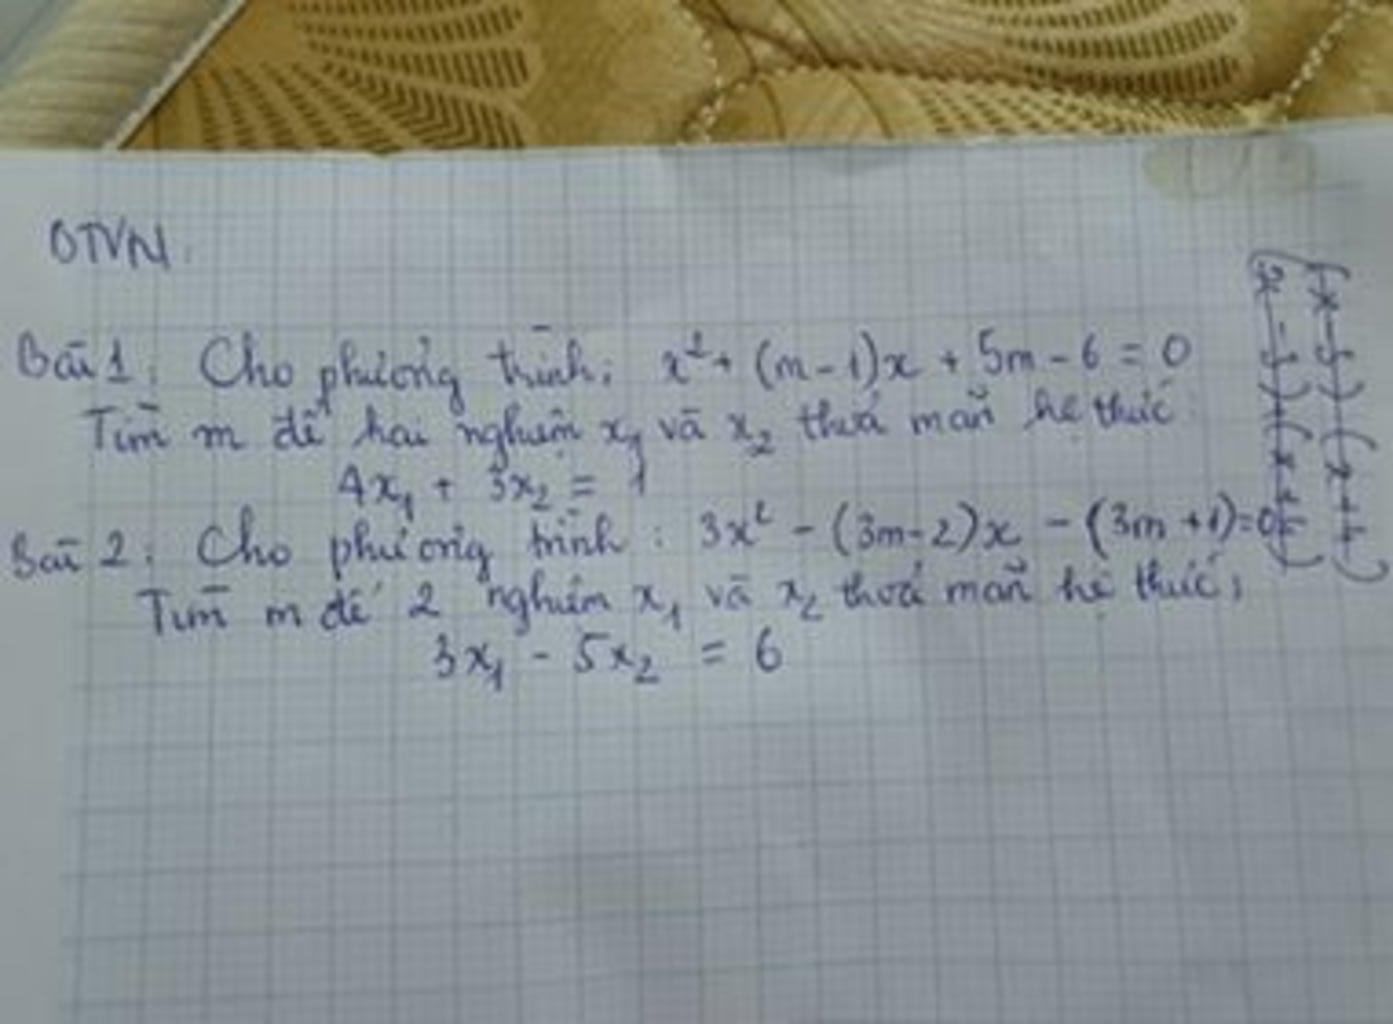 OTVN.
Bài 1: Cho phương trình: x² + (m-1)x + 5m - 6 = 0
Tìm m để hai nghiệm x₁ và x₂ thoả mãn hệ thức
4x₁ + 3x₂ = 1
Bài 2: Cho phương trình: 3x² - (3m-2)x - (3m+1)=0
Tìm m để 2 nghiệm x₁ và x₂ thoả mãn hệ thức:
3x₁ - 5x₂ = 6